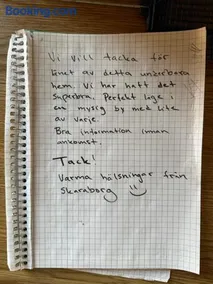 Booking.com
Vi vill tacka för
lånet av detta underbara
hem. Vi har haft det
superbra. Perfekt läge i
en mysig by med lite
av varje.
Bra information innan
ankomst.
Tack!
Varma hälsningar från
Skaraborg